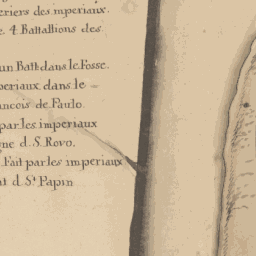 eriers des imperiaux.
e 4 Battallions des
un Batt dans le Fosse.
periaux dans le
rancois de Paulo.
par les imperiaux
gne d. S. Rovo.
. Fait par les imperiaux
nt d. St Papin